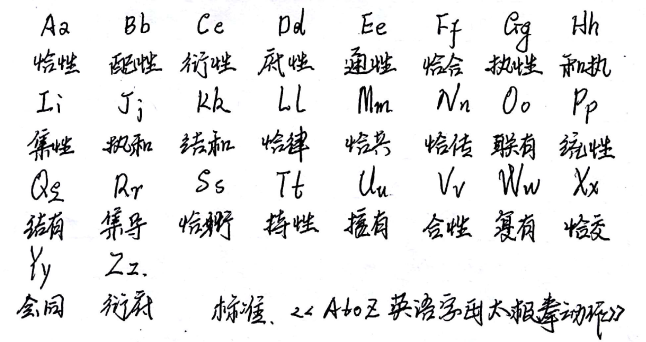 Aa Bb Cc Dd Ee Ff Gg Hh
恰性 配性 衍性 底性 通性 恰合 执性 和执
Ii Jj Kk Ll Mm Nn Oo Pp
集性 执和 结和 恰律 恰共 恰传 联有 统性
Qq Rr Ss Tt Uu Vv Ww Xx
结有 集导 恰衍 持性 擅有 合性 复有 恰交
Yy Zz.
会同 衍府 标准、<<AtoZ英语字母太极拳动作>>